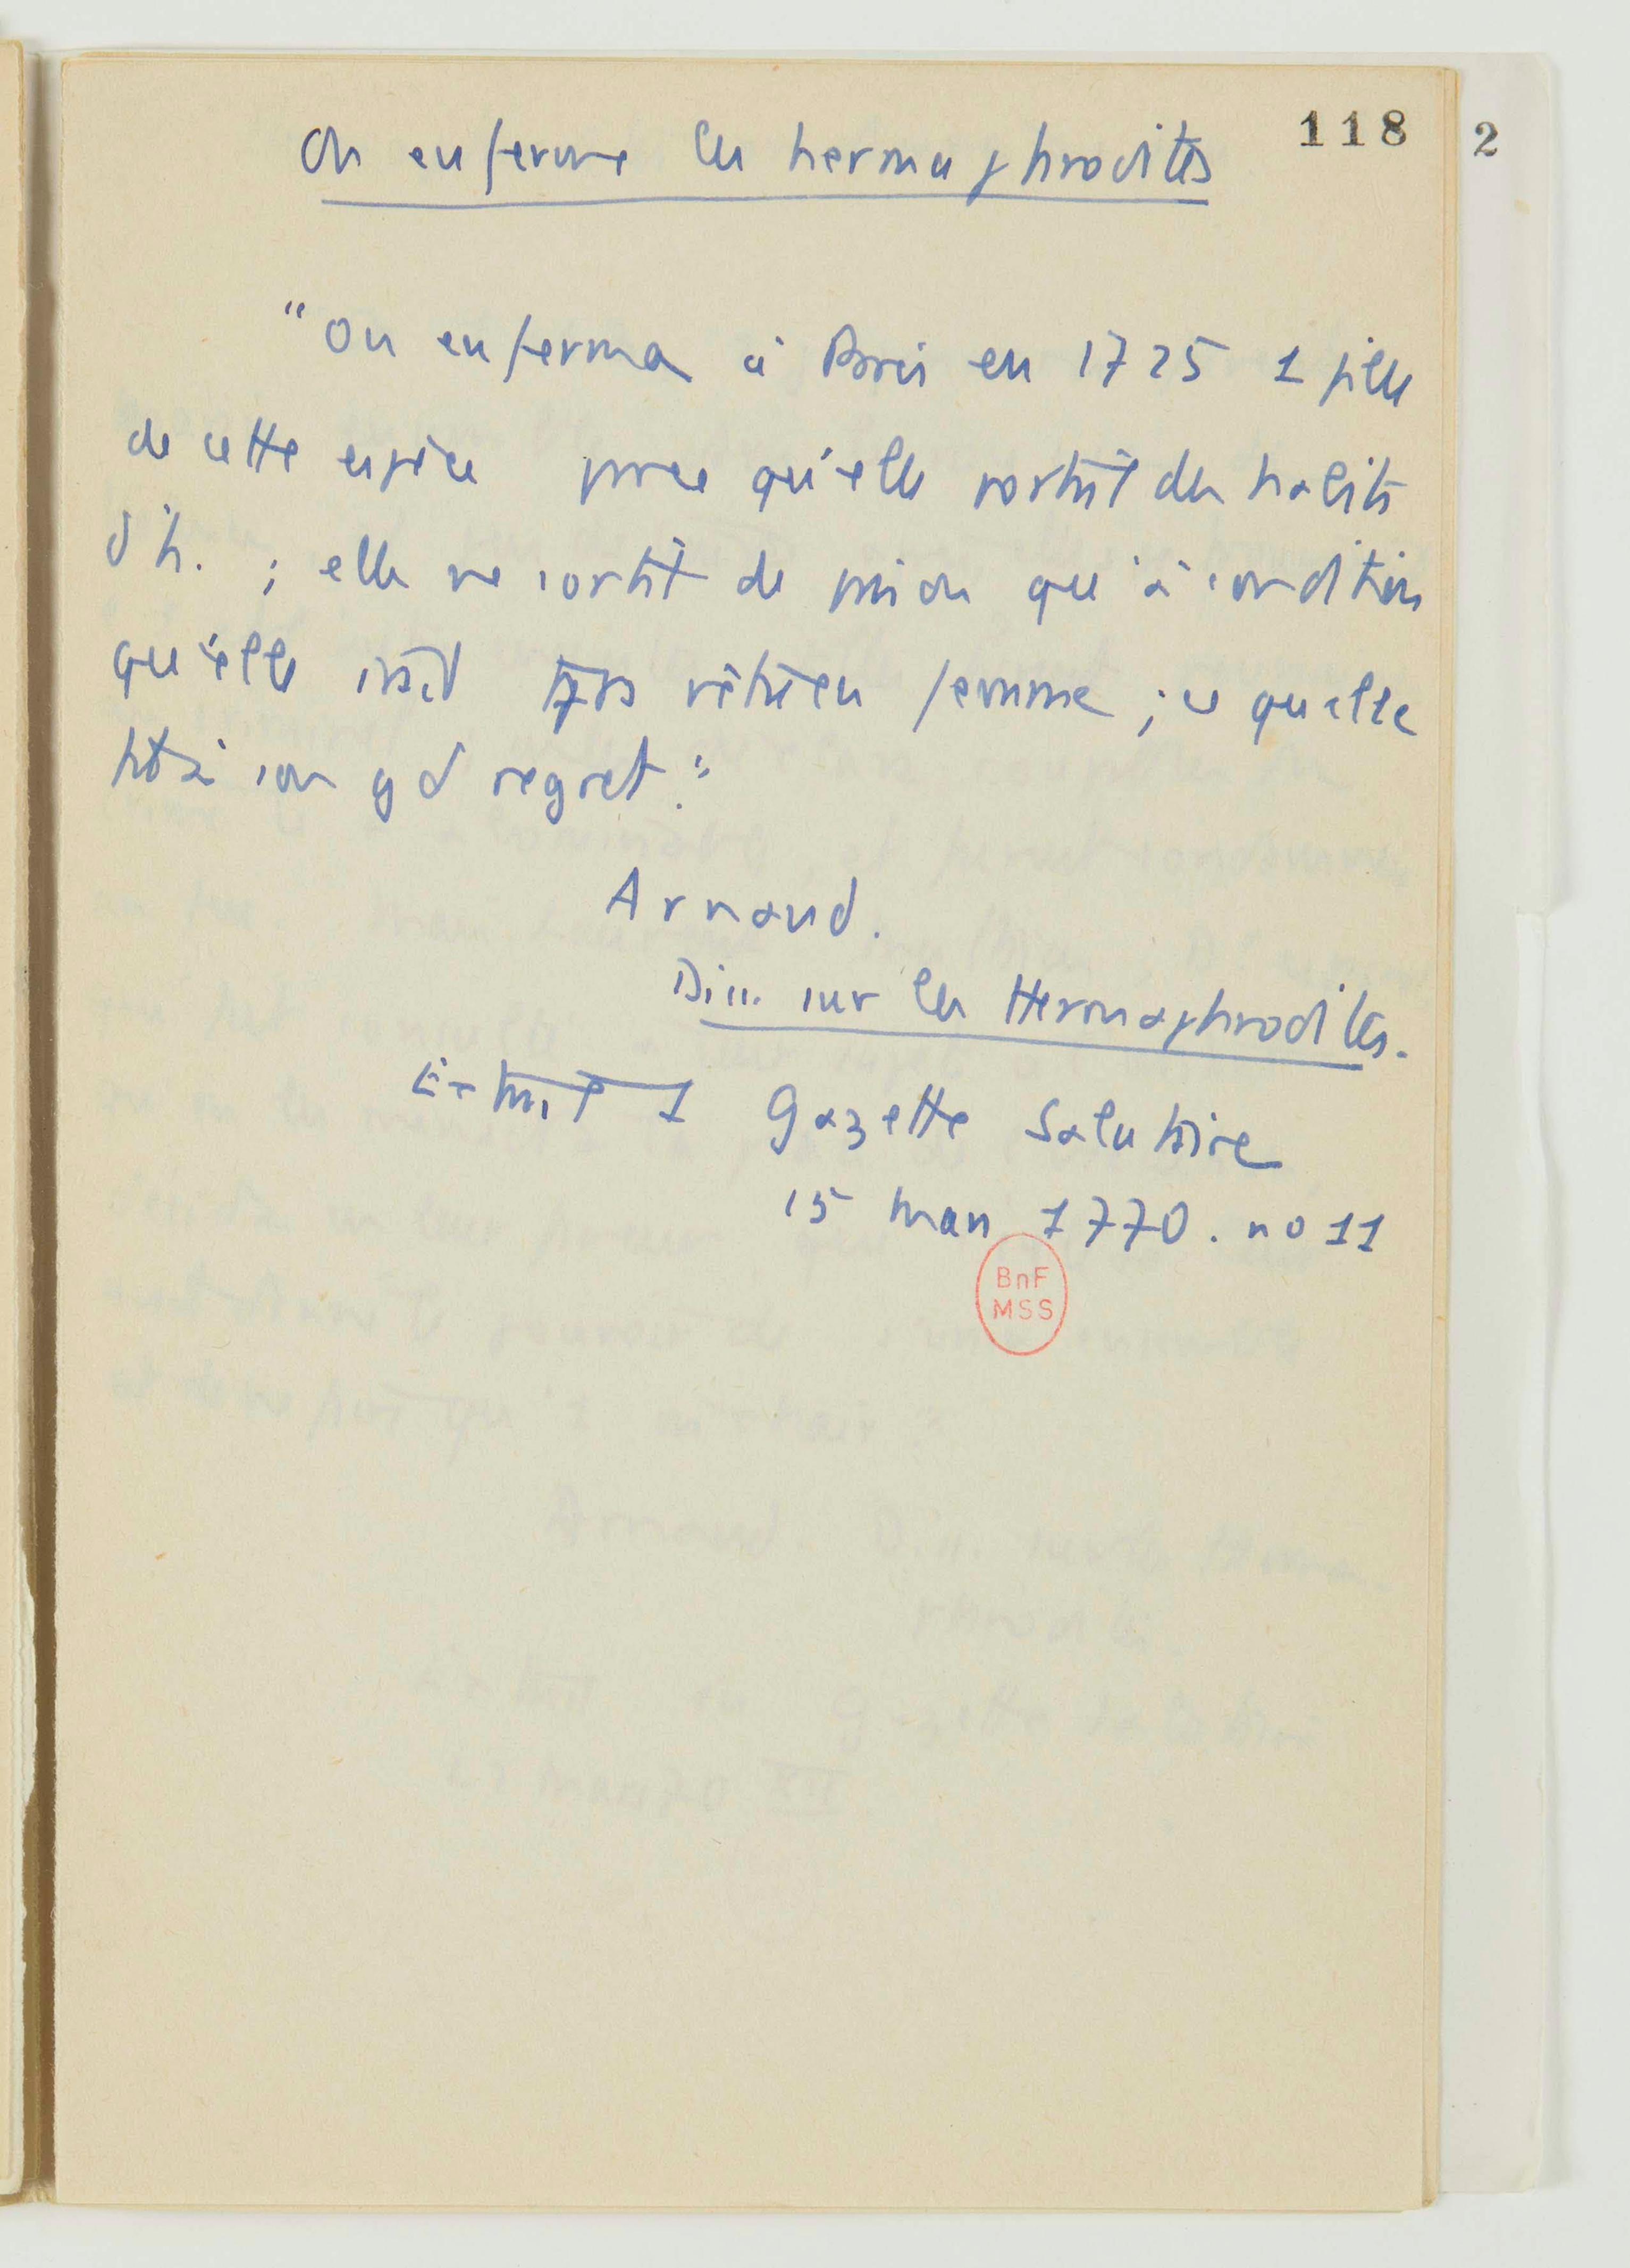 118
2
On enferme les hermaphrodites
"On enferma à Paris en 1725 1 fille
de cette espèce parce qu'elle portait des habits
d'h. ; elle ne sortit de prison qu'à condition
qu'elle irait tjrs vêtue en femme ; ce qu'elle
fit à son gd regret."
Arnaud.
Diss. sur les Hermaphrodites.
Extrait Gazette Salutaire
15 mars 1770. no 11
BnF
MSS